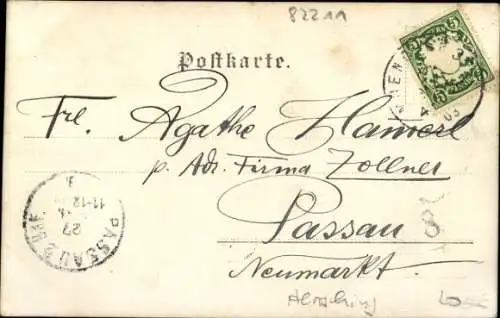 82211
Postkarte.
Frl. Agathe Hamerl
p. Adr. Firma Zollner
Passau
Neumarkt.
8
PASSAU 2
27
11-12
5
5
03